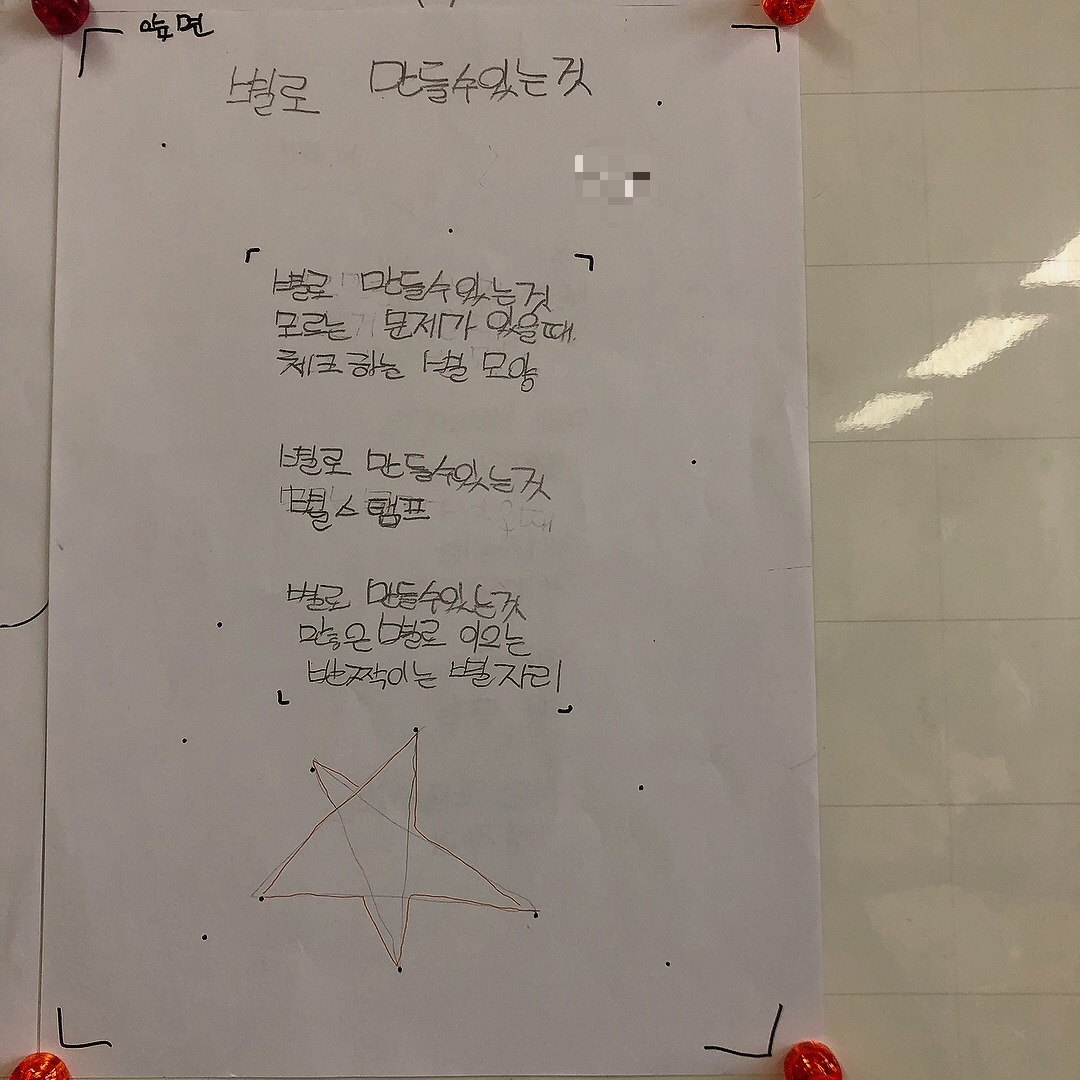 앞면
별로 만들수있는것
별로 만들수있는것
모르는 문제가 있을때
체크하는 별 모양
별로 만들수있는것
별스탬프
별로 만들수있는것
많은 별로 이으는
반짝이는 별자리